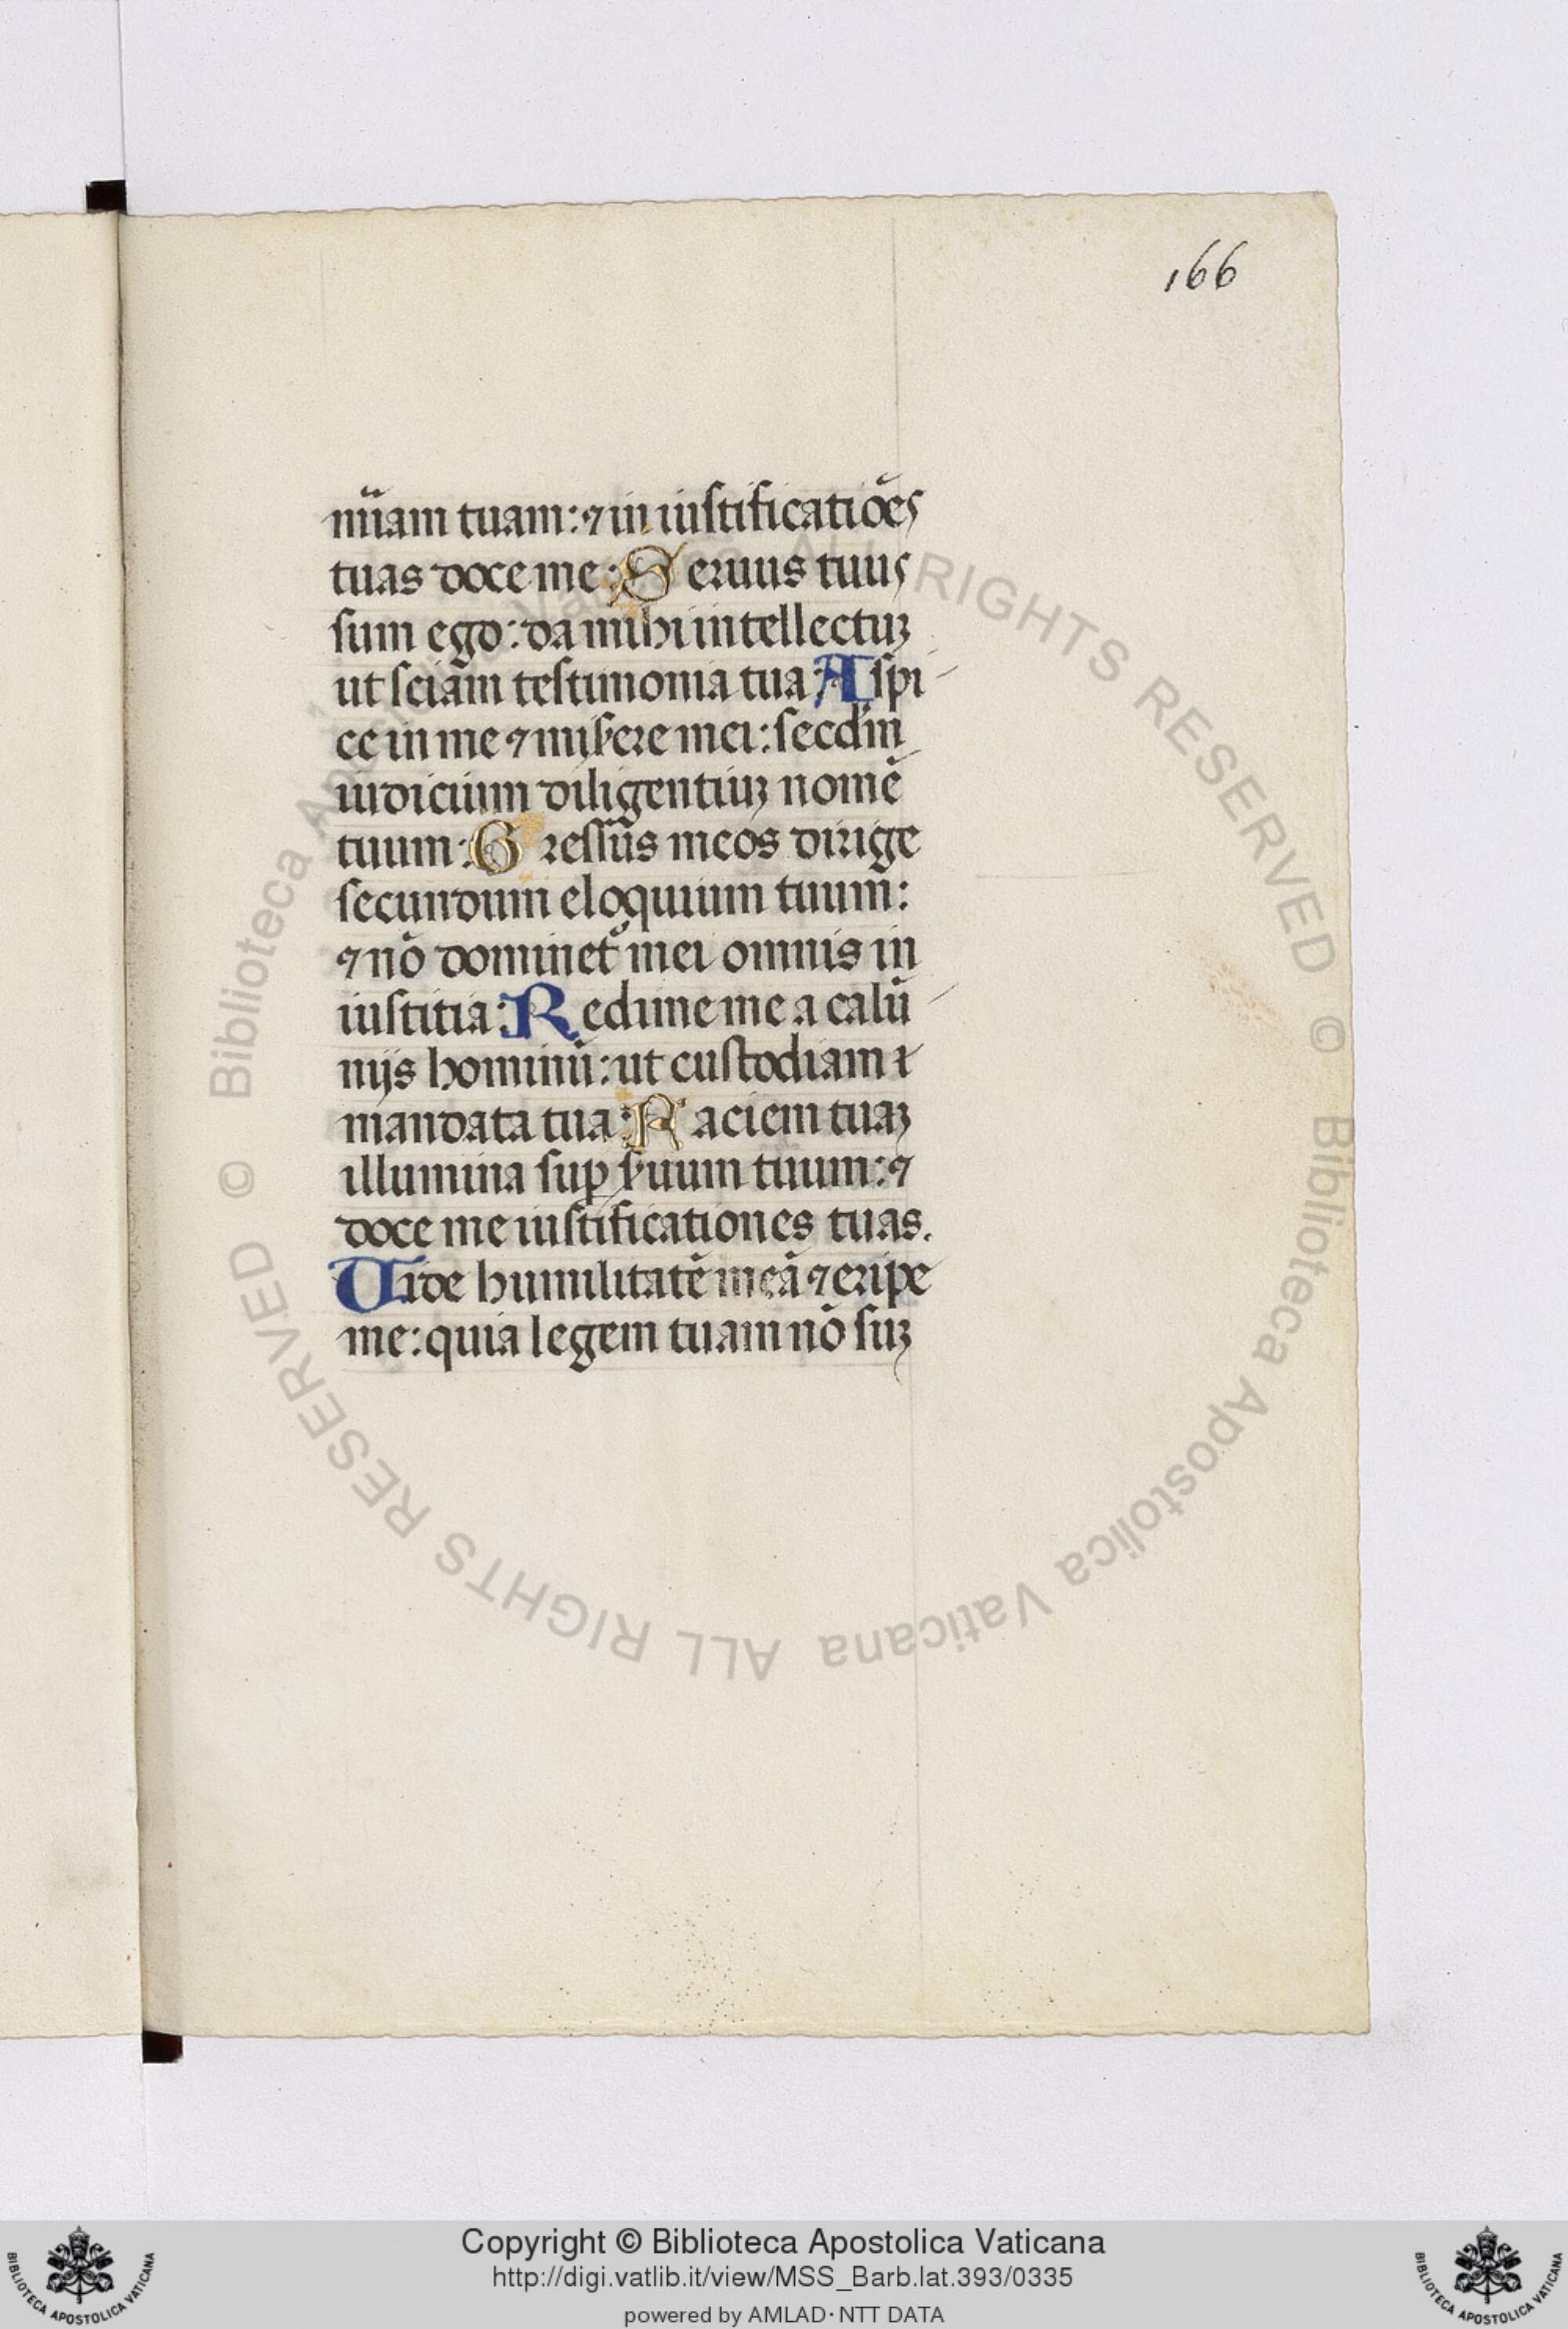 166
nūam tuam: ⁊ in iustificatiōes
tuas doce me: Seruus tuus
sum ego: da mihi intellectuꝫ
ut sciam testimonia tua: Aspi
ce in me ⁊ misere mei: secdm
iudicium diligentiuꝫ nomē
tuum: Gressus meos dirige
secundum eloquium tuum:
⁊ nō dominet᷒ mei omnis in
iustitia: Redime me a calū
nijs hominū: ut custodiam
mandata tua: Faciem tuaꝫ
illumina suꝑ s̾uum tuum: ⁊
doce me iustificationes tuas.
Uide humilitatē meā ⁊ eripe
me: quia legem tuam nō suꝫ
© Biblioteca Apostolica Vaticana ALL RIGHTS RESERVED © Biblioteca Apostolica Vaticana ALL RIGHTS RESERVED
Copyright © Biblioteca Apostolica Vaticana
http://digi.vatlib.it/view/MSS_Barb.lat.393/0335
powered by AMLAD·NTT DATA
BIBLIOTECA APOSTOLICA VATICANA
BIBLIOTECA APOSTOLICA VATICANA